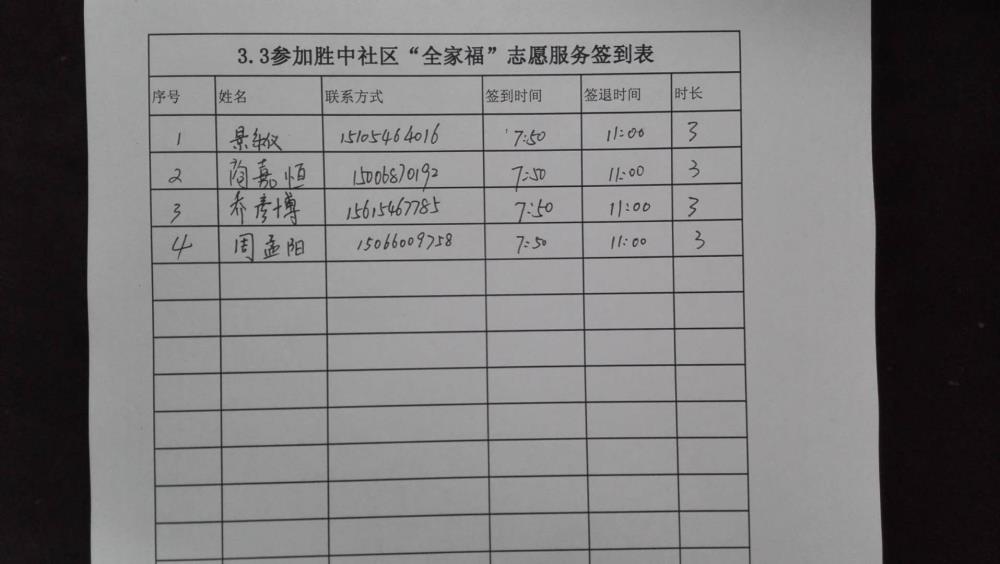 3.3参加胜中社区“全家福”志愿服务签到表
序号 姓名 联系方式 签到时间 签退时间 时长
1 15105464016 7:50 11:00 3
2 嘉恒 15006870192 7:50 11:00 3
3 乔彦博 15615467785 7:50 11:00 3
4 周孟阳 15066009758 7:50 11:00 3